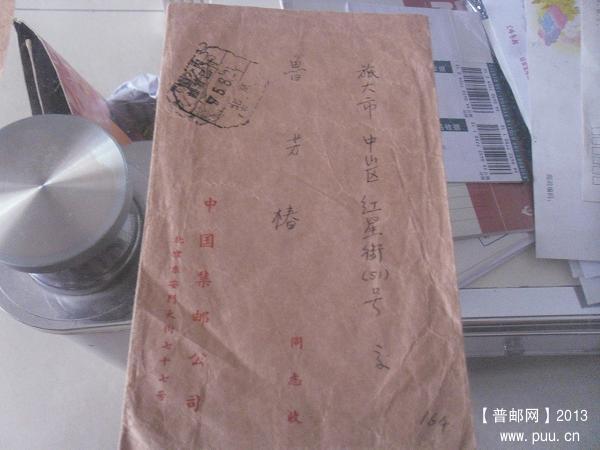 旅大市中山区红星街(51)号交
鲁芳椿
同志收
中国集邮公司
北京东安门大街七十七号
北京
164
【普邮网】2013
www.puu.cn